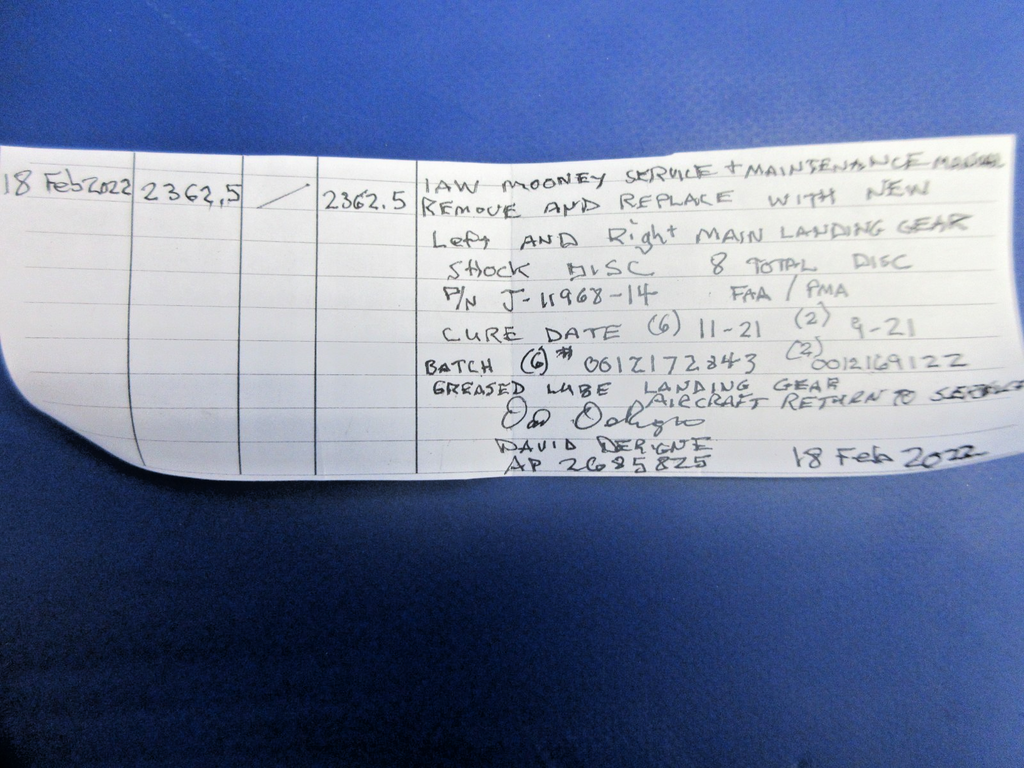 18 Feb 2022 2362.5 / 2362.5 IAW MOONEY SERVICE + MAINTENANCE MANUAL
REMOVE AND REPLACE WITH NEW
Left AND Right MAIN LANDING GEAR
SHOCK DISC 8 TOTAL DISC
P/N J-11968-14 FAA / PMA
CURE DATE (6) 11-21 (2) 9-21
BATCH (6) # 0012172343 (2) 0012169122
GREASED LUBE LANDING GEAR
AIRCRAFT RETURN TO SERVICE
DAVID DERIGNE
AP 2685825 18 Feb 2022